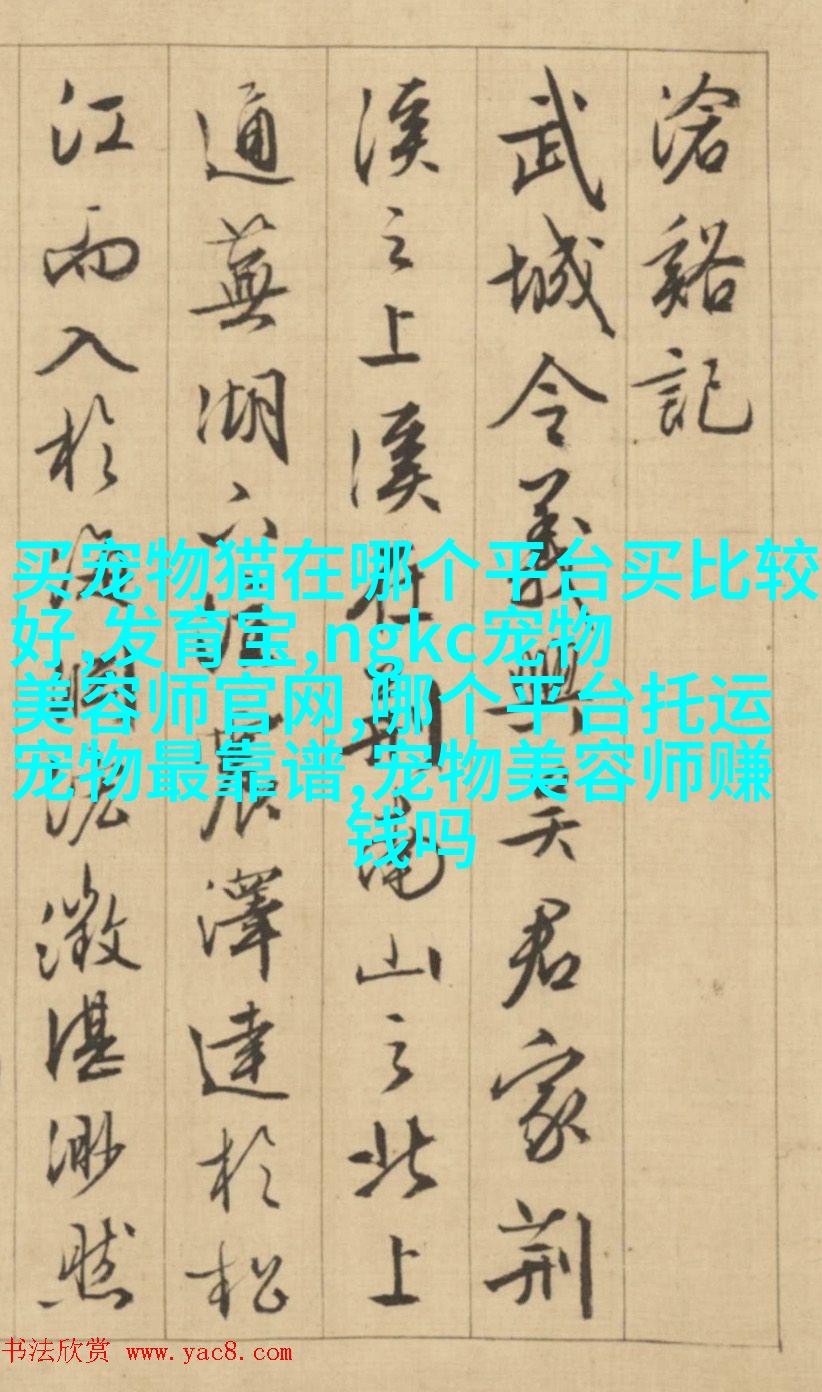 滄谿記
武城令義興吳君家荆
溪之上溪在荆南山之北上
通蕪湖下注震澤達於松
江而入於海泓澂湛渺然
买宠物猫在哪个平台买比较
好,发育宝,ngkc宠物
美容师官网,哪个平台托运
宠物最靠谱,宠物美容师赚
钱吗
书法欣赏 www.yac8.com